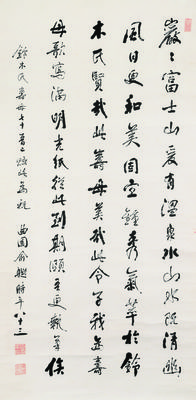 巖〻富士山爰有温泉水山水既清幽
風日更和美固宜鍾秀氣萃於鈴
木氏賢哉此壽母美哉此令子我爲壽
母歌寫滿明光紙從此到期頤更執筆俟
鈴木氏壽母七十晋二賦此爲祝 曲園俞樾時年八十三